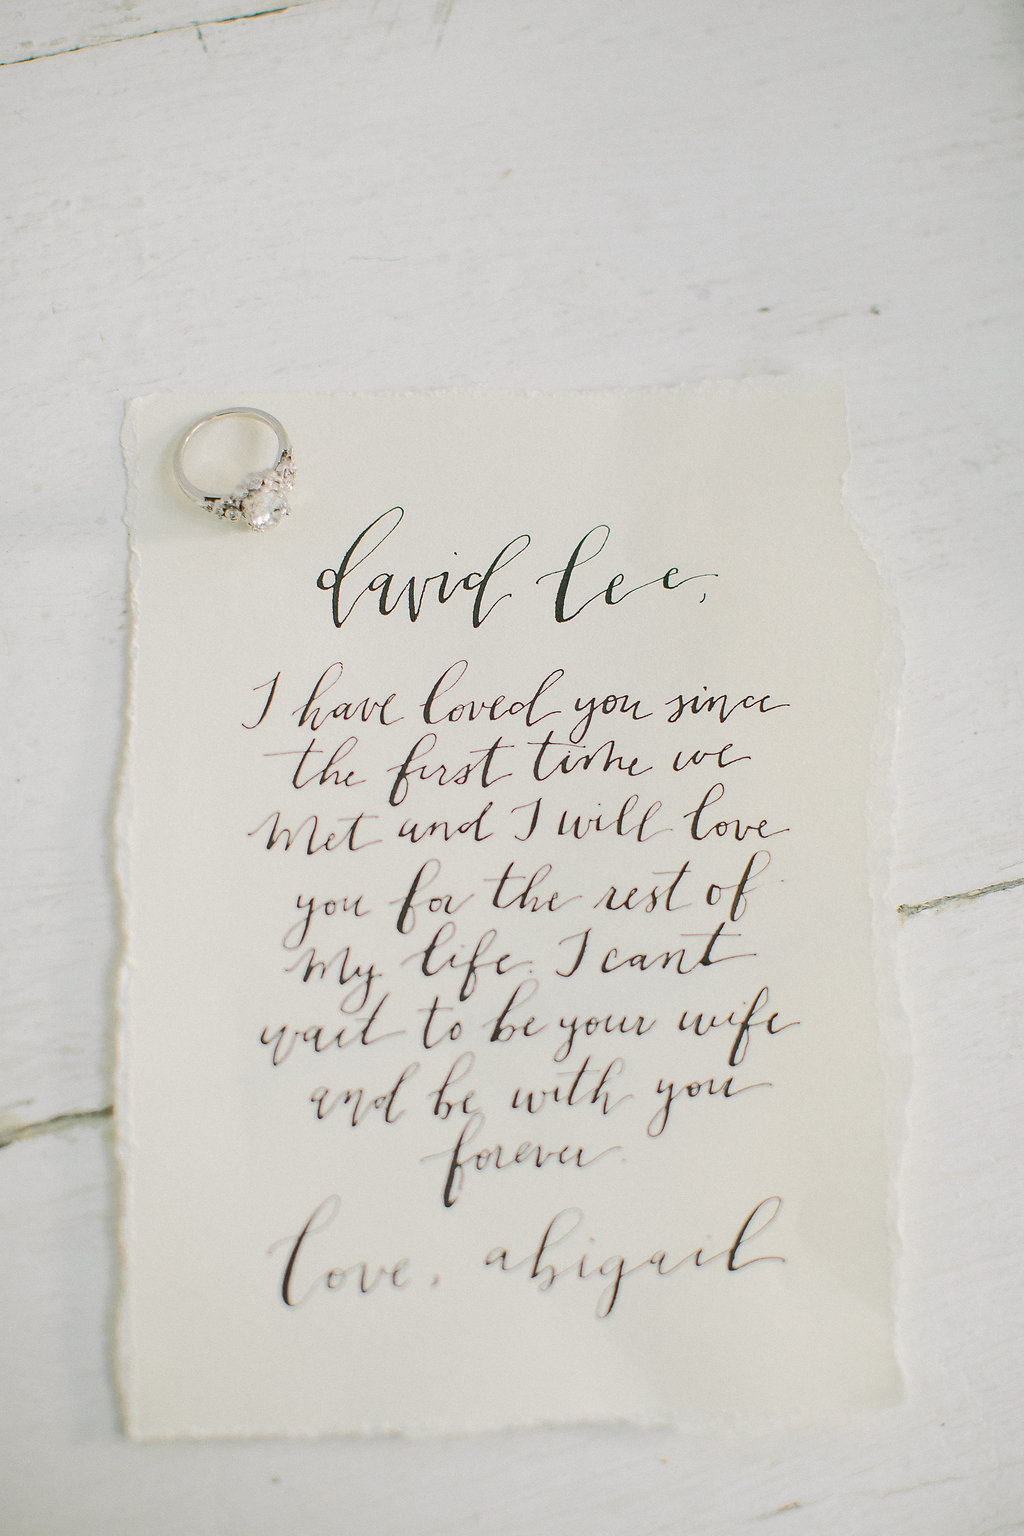 david lee,
I have loved you since
the first time we
Met and I will love
you for the rest of
My life. I cant
wait to be your wife
and be with you
forever.
love, abigail